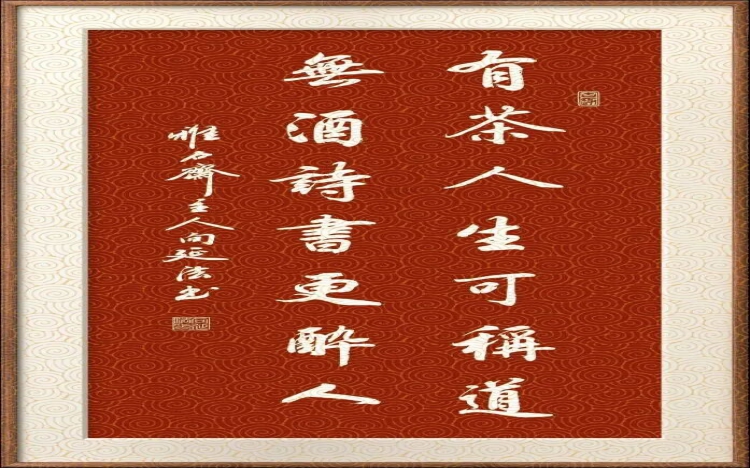 有茶人生可稱道
無酒詩書更醉人
惟石齋主人向延法书